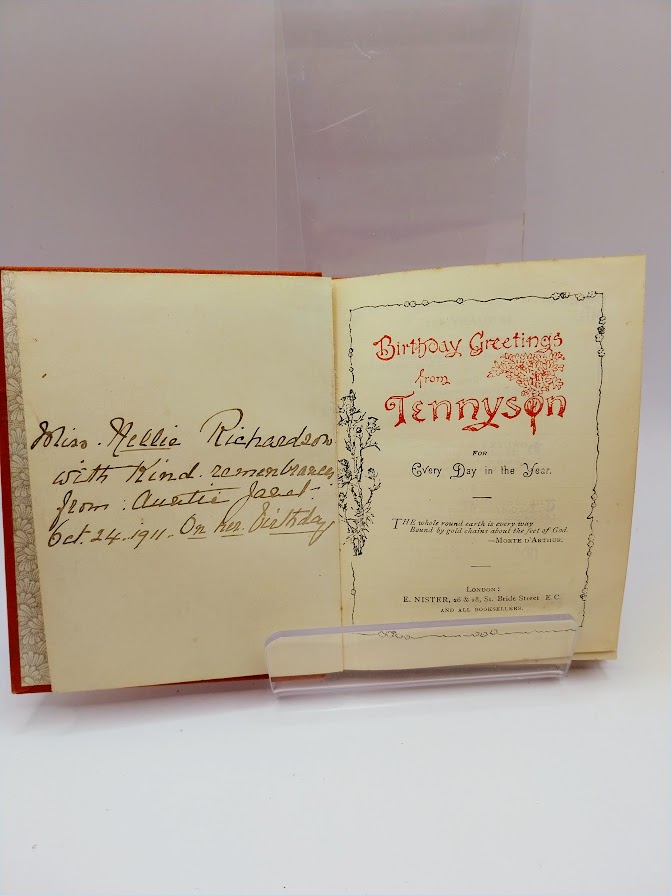 Miss. Nellie Richardson
with Kind remembrances
from. Auntie Janet.
Oct. 24. 1911. On her. Birthday
Birthday Greetings
from
Tennyson
FOR
Every Day in the Year.
THE whole round earth is every way
Bound by gold chains about the feet of God.
—MORTE D'ARTHUR.
LONDON:
E. NISTER, 26 & 28, St. Bride Street E.C.
AND ALL BOOKSELLERS.